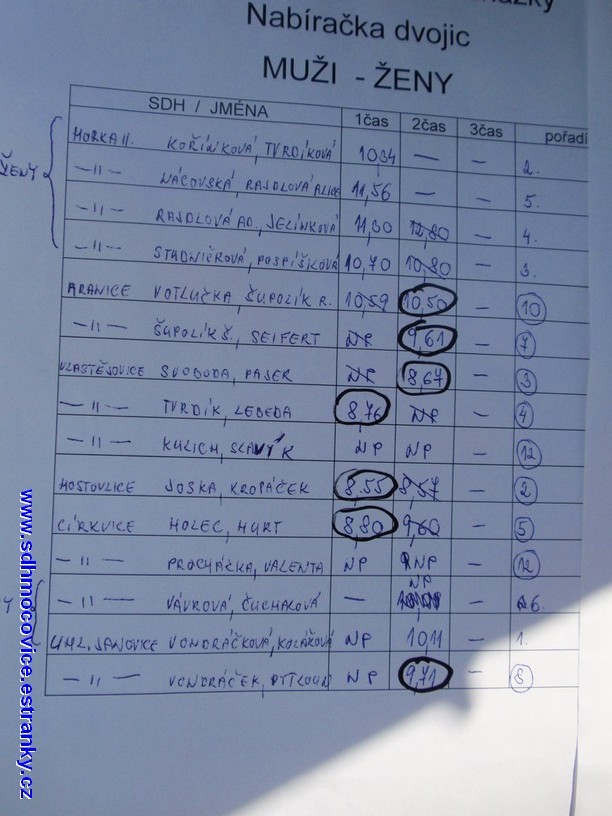 Nabíračka dvojic
MUŽI - ŽENY
SDH / JMÉNA 1čas 2čas 3čas pořadí
HORKA II. KOŘÍNKOVÁ, TVRDÍKOVÁ 10,34 — — 2.
ŽENY
—II— NÁCOVSKÁ, RAJDLOVÁ ALICE 11,56 — — 5.
—II— RAJDLOVÁ AD., JELÍNKOVÁ 11,30 12,80 — 4.
—II— STUDNIČKOVÁ, POSPÍŠILOVÁ 10,70 10,80 — 3.
HRANICE VOTLUČKA, ČUPOLÍK R. 10,59 10,50 — 10
—II— ČUPOLÍK Š., SEIFERT NP 9,61 — 7
VLASTĚJOVICE SVOBODA, PAJER NP 8,67 — 3
—II— TVRDÍK, LEBEDA 8,76 NP — 4
—II— KULICH, SLAVÍK NP NP — 12
HOSTOVLICE JOSKA, KROPÁČEK 8.55 8,57 — 2
CÍRKVICE HOLEC, HURT 8,80 9,60 — 5
—II— PROCHÁZKA, VALENTA NP NP — 12
—II— VÁVROVÁ, ČUCHALOVÁ — NP — 6.
UHL. JANOVICE VONDRÁČKOVÁ, KOLÁŘOVÁ NP 10,11 — 1.
—II— VONDRÁČEK, NP 9,71 — 8
www.sdhmocovice.estranky.cz